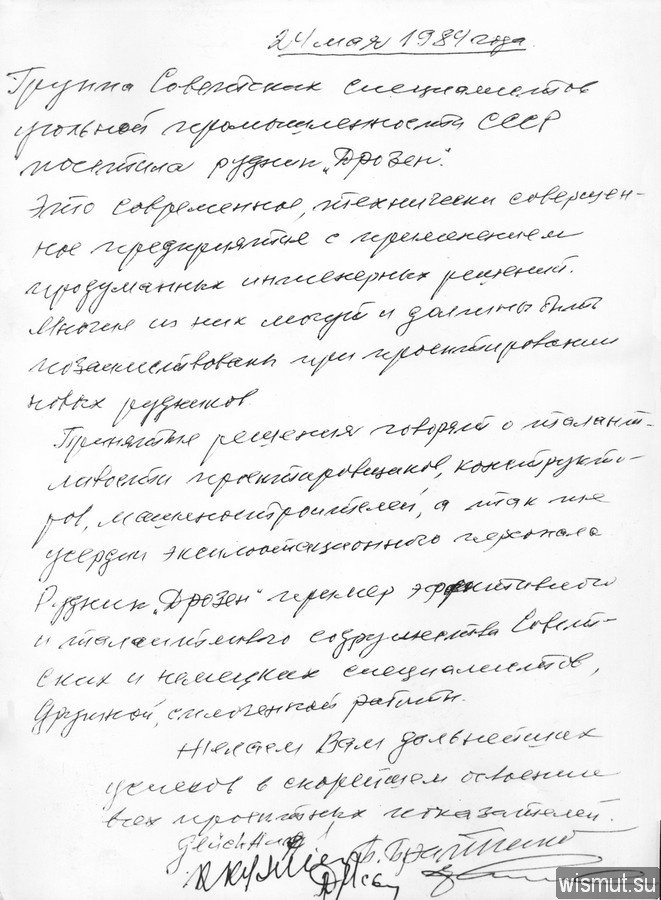 24 мая 1984 года.
Группа Советских специалистов
угольной промышленности СССР
посетила рудник „Дрозен".
Это современное, технически совершен-
ное предприятие с применением
продуманных инженерных решений.
Многие из них могут и должны быть
позаимствованы при проектировании
новых рудников
Принятые решения говорят о талант-
ливости проектировщиков, конструкто-
ров, машиностроителей, а так же
усердии эксплоатационного персонала
Рудник „Дрозен" пример эффективного
и талантливого содружества Совет-
ских и немецких специалистов,
дружной, сплоченной работы.
Желаем Вам дальнейших
успехов в скорейшем освоении
всех проектных показателей.
Glück Auf!
wismut.su